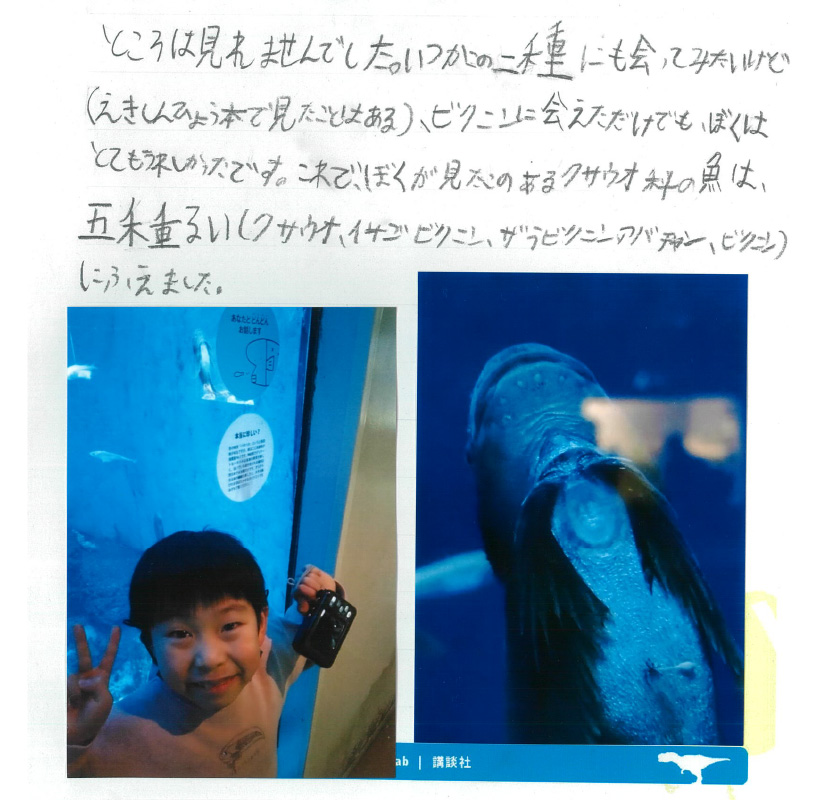 ところは見れませんでした。いつかこの二種にも会ってみたいけど
(えきしんひょう本で見たことはある)、ビクニンに会えただけでも、ぼくは
とてもうれしかったです。これで、ぼくが見たのあるクサウオ科の魚は、
五種るい(クサウオ、イサゴビクニン、ザラビクニン、アバチャン、ビクニン)
にふえました。
あなうととんとん
お話します
本当に珍しい?
ab | 講談社